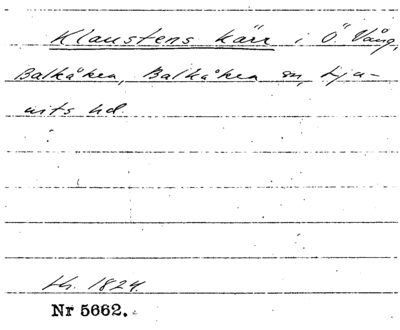 Klaustens kärr i Ö Vång,
Balkåkra, Balkåkra sn, Lju-
nits hd.
th. 1824.
Nr 5662.